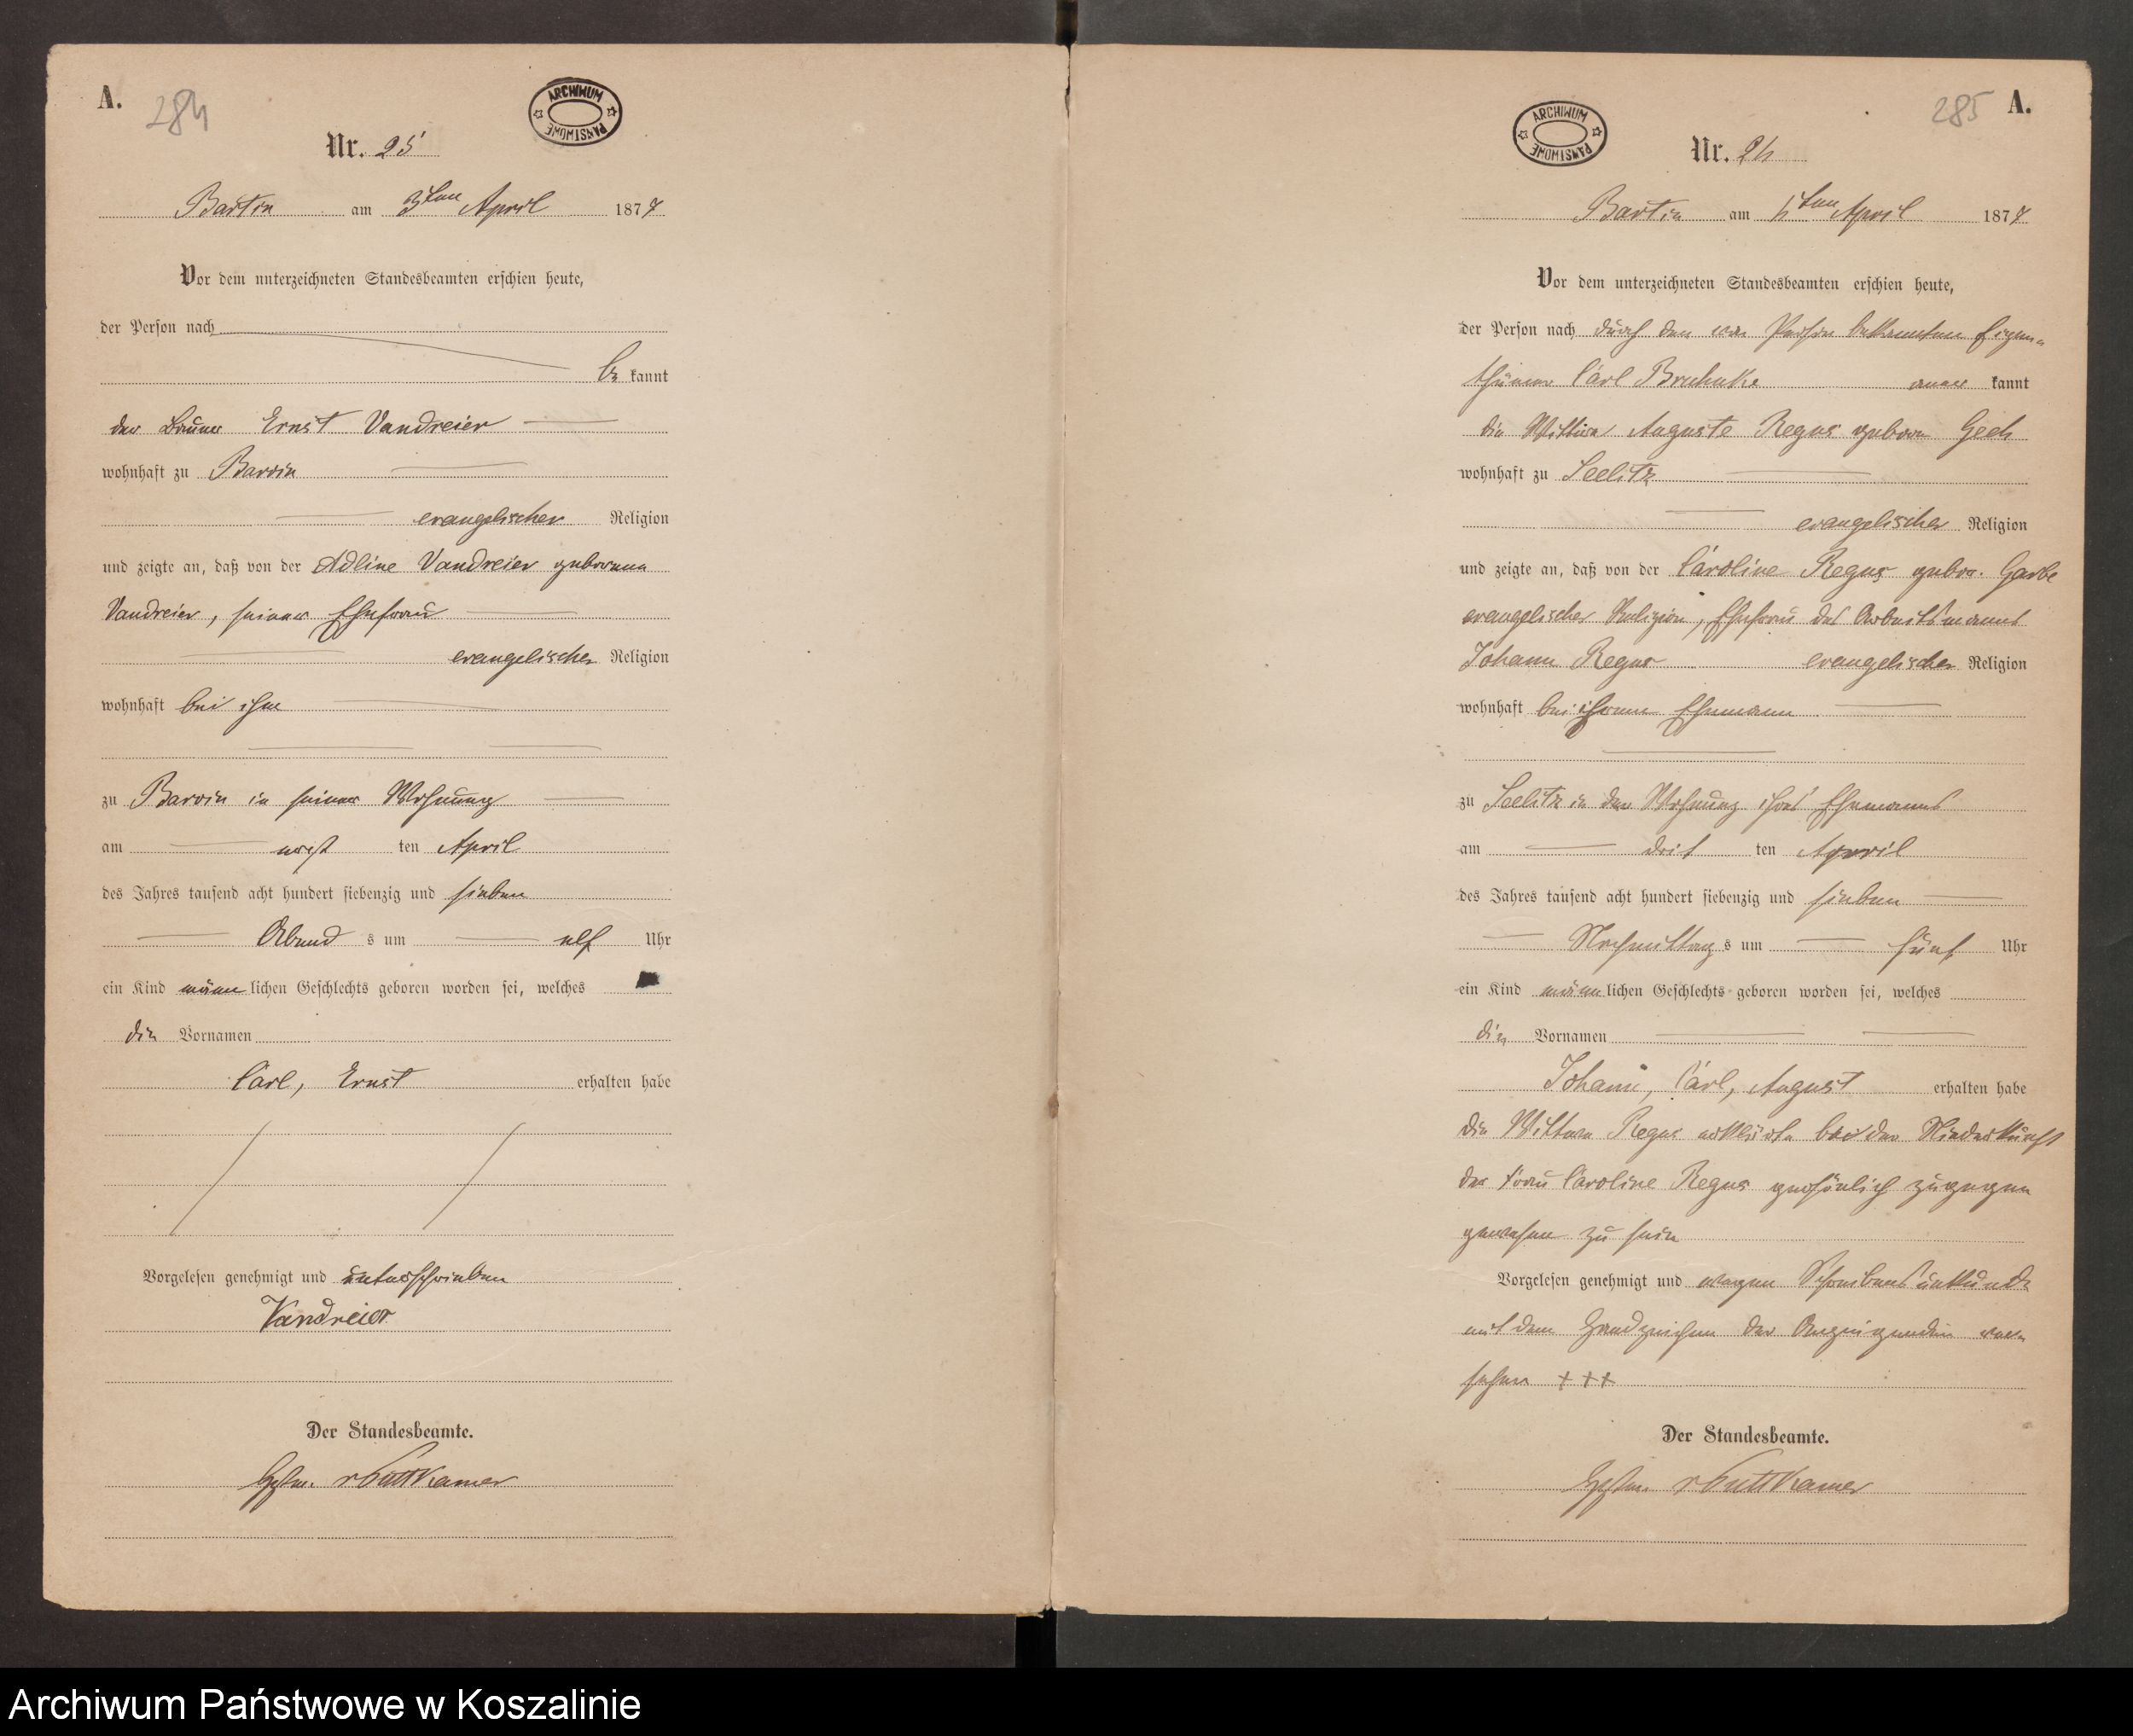 A.
284
ARCHIWUM
PAŃSTWOWE
Nr. 25
Bartin am 3ten April 1877
Vor dem unterzeichneten Standesbeamten erschien heute,
der Person nach
be kannt
der Bauer Ernst Vandreier
wohnhaft zu Barvin
evangelischer Religion
und zeigte an, daß von der Adline Vandreier geborenen
Vandreier, seiner Ehefrau
evangelischer Religion
wohnhaft bei ihm
zu Barvin in seiner Wohnung
am ersten April
des Jahres tausend acht hundert siebenzig und sieben
Abends um elf Uhr
ein Kind männlichen Geschlechts geboren worden sei, welches
die Vornamen
Carl, Ernst erhalten habe
Vorgelesen genehmigt und unterschrieben
Vandreier
Der Standesbeamte.
v Puttkamer
285 A.
ARCHIWUM
PAŃSTWOWE
Nr. 26
Bartin am ten April 1877
Vor dem unterzeichneten Standesbeamten erschien heute,
der Person nach durch den von Person bekannten Eigen-
thümer Carl aner kannt
die Wittwe Auguste Regus geboren
wohnhaft zu Seelitz
evangelischer Religion
und zeigte an, daß von der Caroline Regus gebor. Garbe
evangelischer Religion, Ehefrau des Arbeitsmanns
Johann Regus evangelischer Religion
wohnhaft bei ihrem Ehemann
zu Seelitz in der Wohnung ihres Ehemanns
am dritten April
des Jahres tausend acht hundert siebenzig und sieben
Nachmittags um fünf Uhr
ein Kind männlichen Geschlechts geboren worden sei, welches
die Vornamen
Johann, Carl, August erhalten habe
die Wittwe Regus erklärte bei der Niederkunft
der Frau Caroline Regus persönlich zugegen
gewesen zu sein
Vorgelesen genehmigt und wegen Schreibensunkunde
mit dem Handzeichen der Anzeigenden ver-
sehen +++
Der Standesbeamte.
v Puttkamer
Archiwum Państwowe w Koszalinie